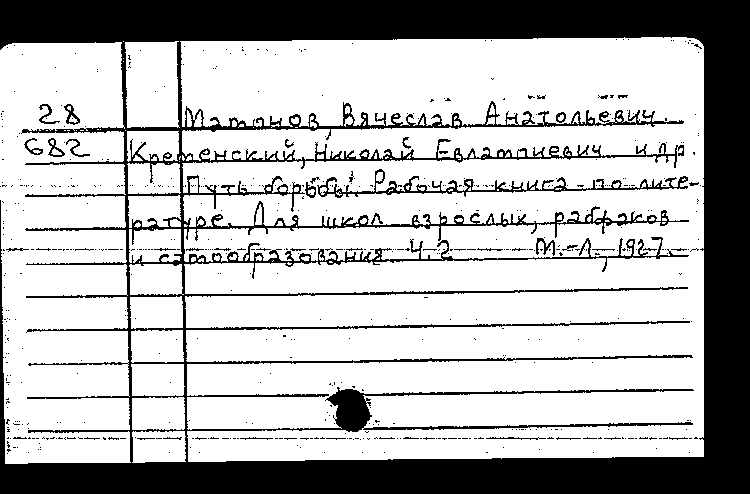 28 Матонов, Вячеслав Анатольевич.
682 Кременский, Николай Евлампиевич и др.
Путь борьбы. Рабочая книга по лите-
ратуре. Для школ взрослых, рабфаков
и самообразования. Ч.2 М.-Л., 1927.